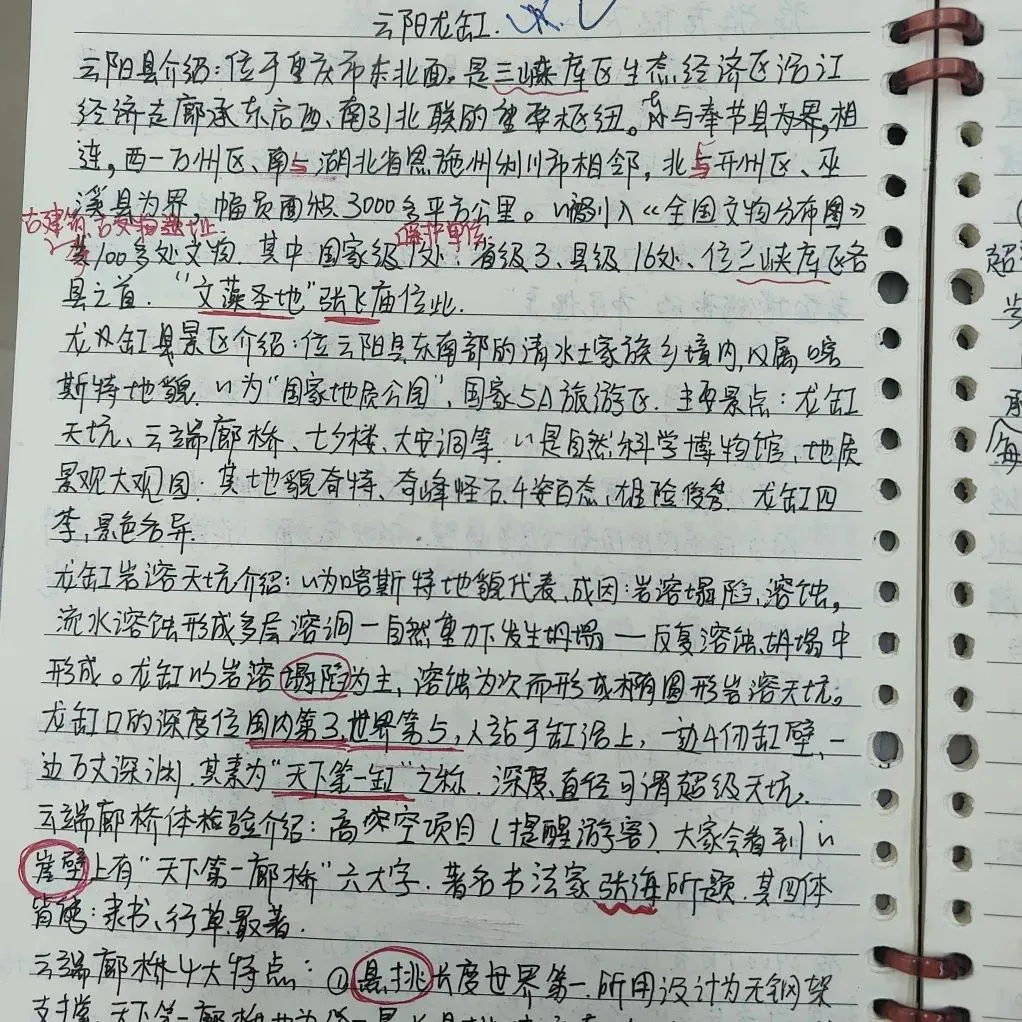 云阳龙缸.
云阳县介绍：位于重庆市东北面。是三峡库区生态经济区沿江
经济走廊承东启西、南引北联的重要枢纽。东与奉节县为界,相
连，西一万州区、南与湖北省恩施州利川市相邻，北与开州区、巫
溪县为界，幅员面积3000多平方公里。被列入《全国文物分布图》
古建筑、古文物遗址. 保护单位
100多处文物. 其中国家级1处：省级3、县级16处、位三峡库区各
县之首. “文藻圣地”张飞庙位此.
龙缸县景区介绍：位云阳县东南部的清水土家族乡境内,属喀
斯特地貌. 为“国家地质公园”、国家5A旅游区. 主要景点：龙缸
天坑、云端廊桥、七夕楼、大安洞等. 是自然科学博物馆、地质
景观大观园：其地貌奇特、奇峰怪石、千姿百态、雄险俊秀. 龙缸四
季,景色各异.
龙缸岩溶天坑介绍：为喀斯特地貌代表、成因：岩溶塌陷、溶蚀。
流水溶蚀形成多层溶洞—自然重力下发生坍塌—反复溶蚀、坍塌中
形成。龙缸以岩溶塌陷为主、溶蚀为次而形成椭圆形岩溶天坑。
龙缸口的深度位国内第3,世界第5,人站于缸沿上，一边4仞缸壁、一
边万丈深渊. 其素为“天下第一缸”之称. 深度、直径可谓超级天坑.
云端廊桥体检验介绍：高空项目（提醒游客）大家会看到
崖壁上有“天下第一廊桥”六大字. 著名书法家张海所题. 其四体
皆能：隶书、行草最著.
云端廊桥4大特点：①悬挑长度世界第一. 所用设计为无钢架
支撑